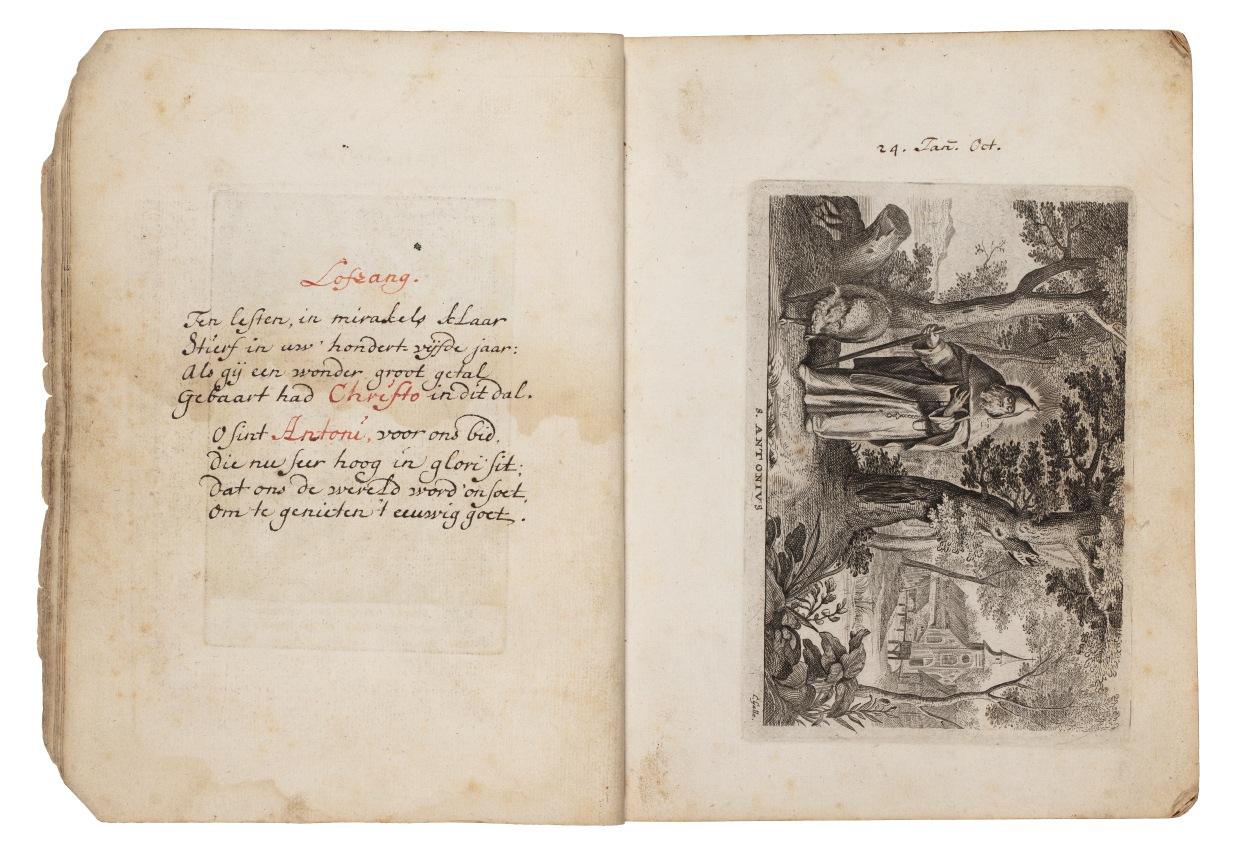 Lofzang.
Ten lesten, in mirakels klaar
Stierf in uw' hondert-vyfde jaar:
Als gij een wonder groot getal
Gebaart had Christo in dit dal.
O sint Antoni, voor ons bid,
Die nu seer hoog in glori sit;
Dat ons de wereld word' onsoet,
Om te genieten 't eeuwig goet.
24. Jan̄. Oct.
S. ANTONIVS
C. Galle.